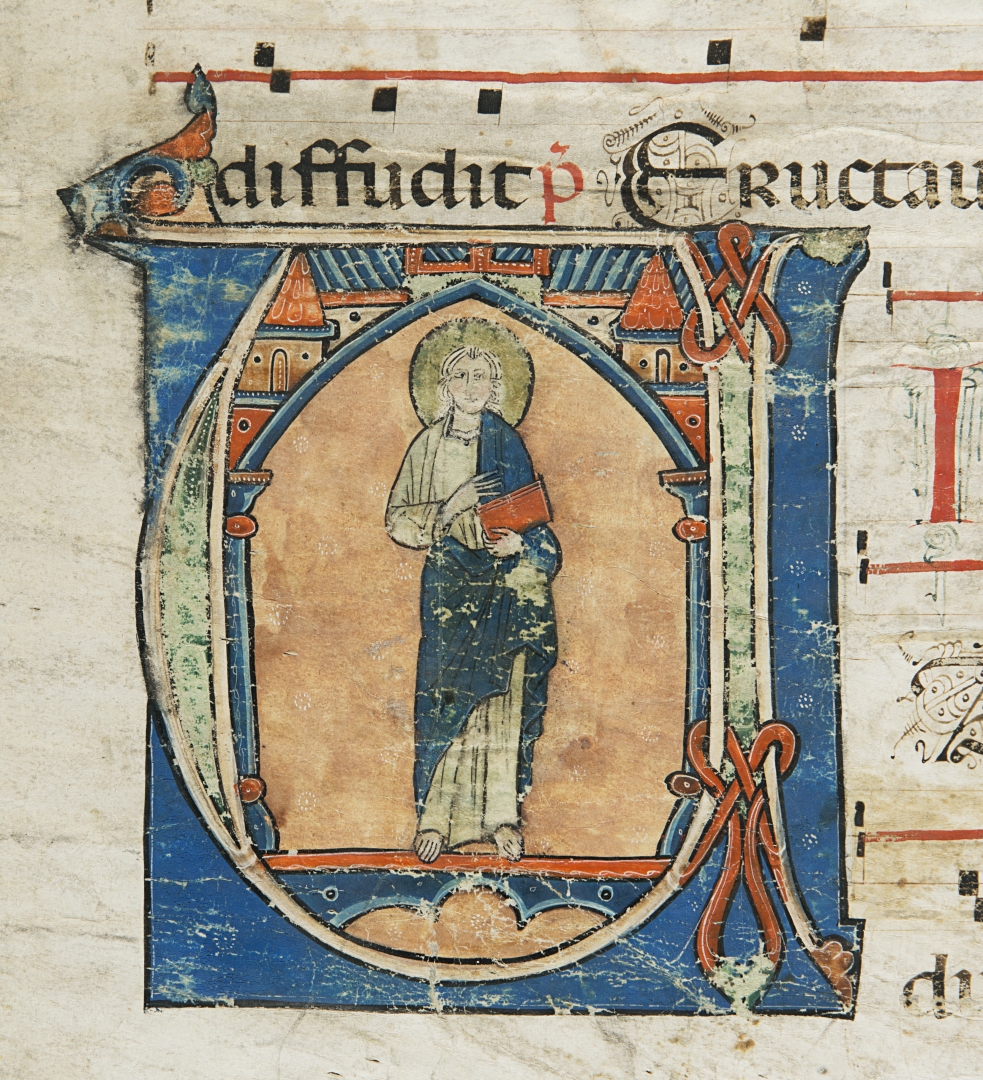 diffudit p̃ Eructau
U
I
du